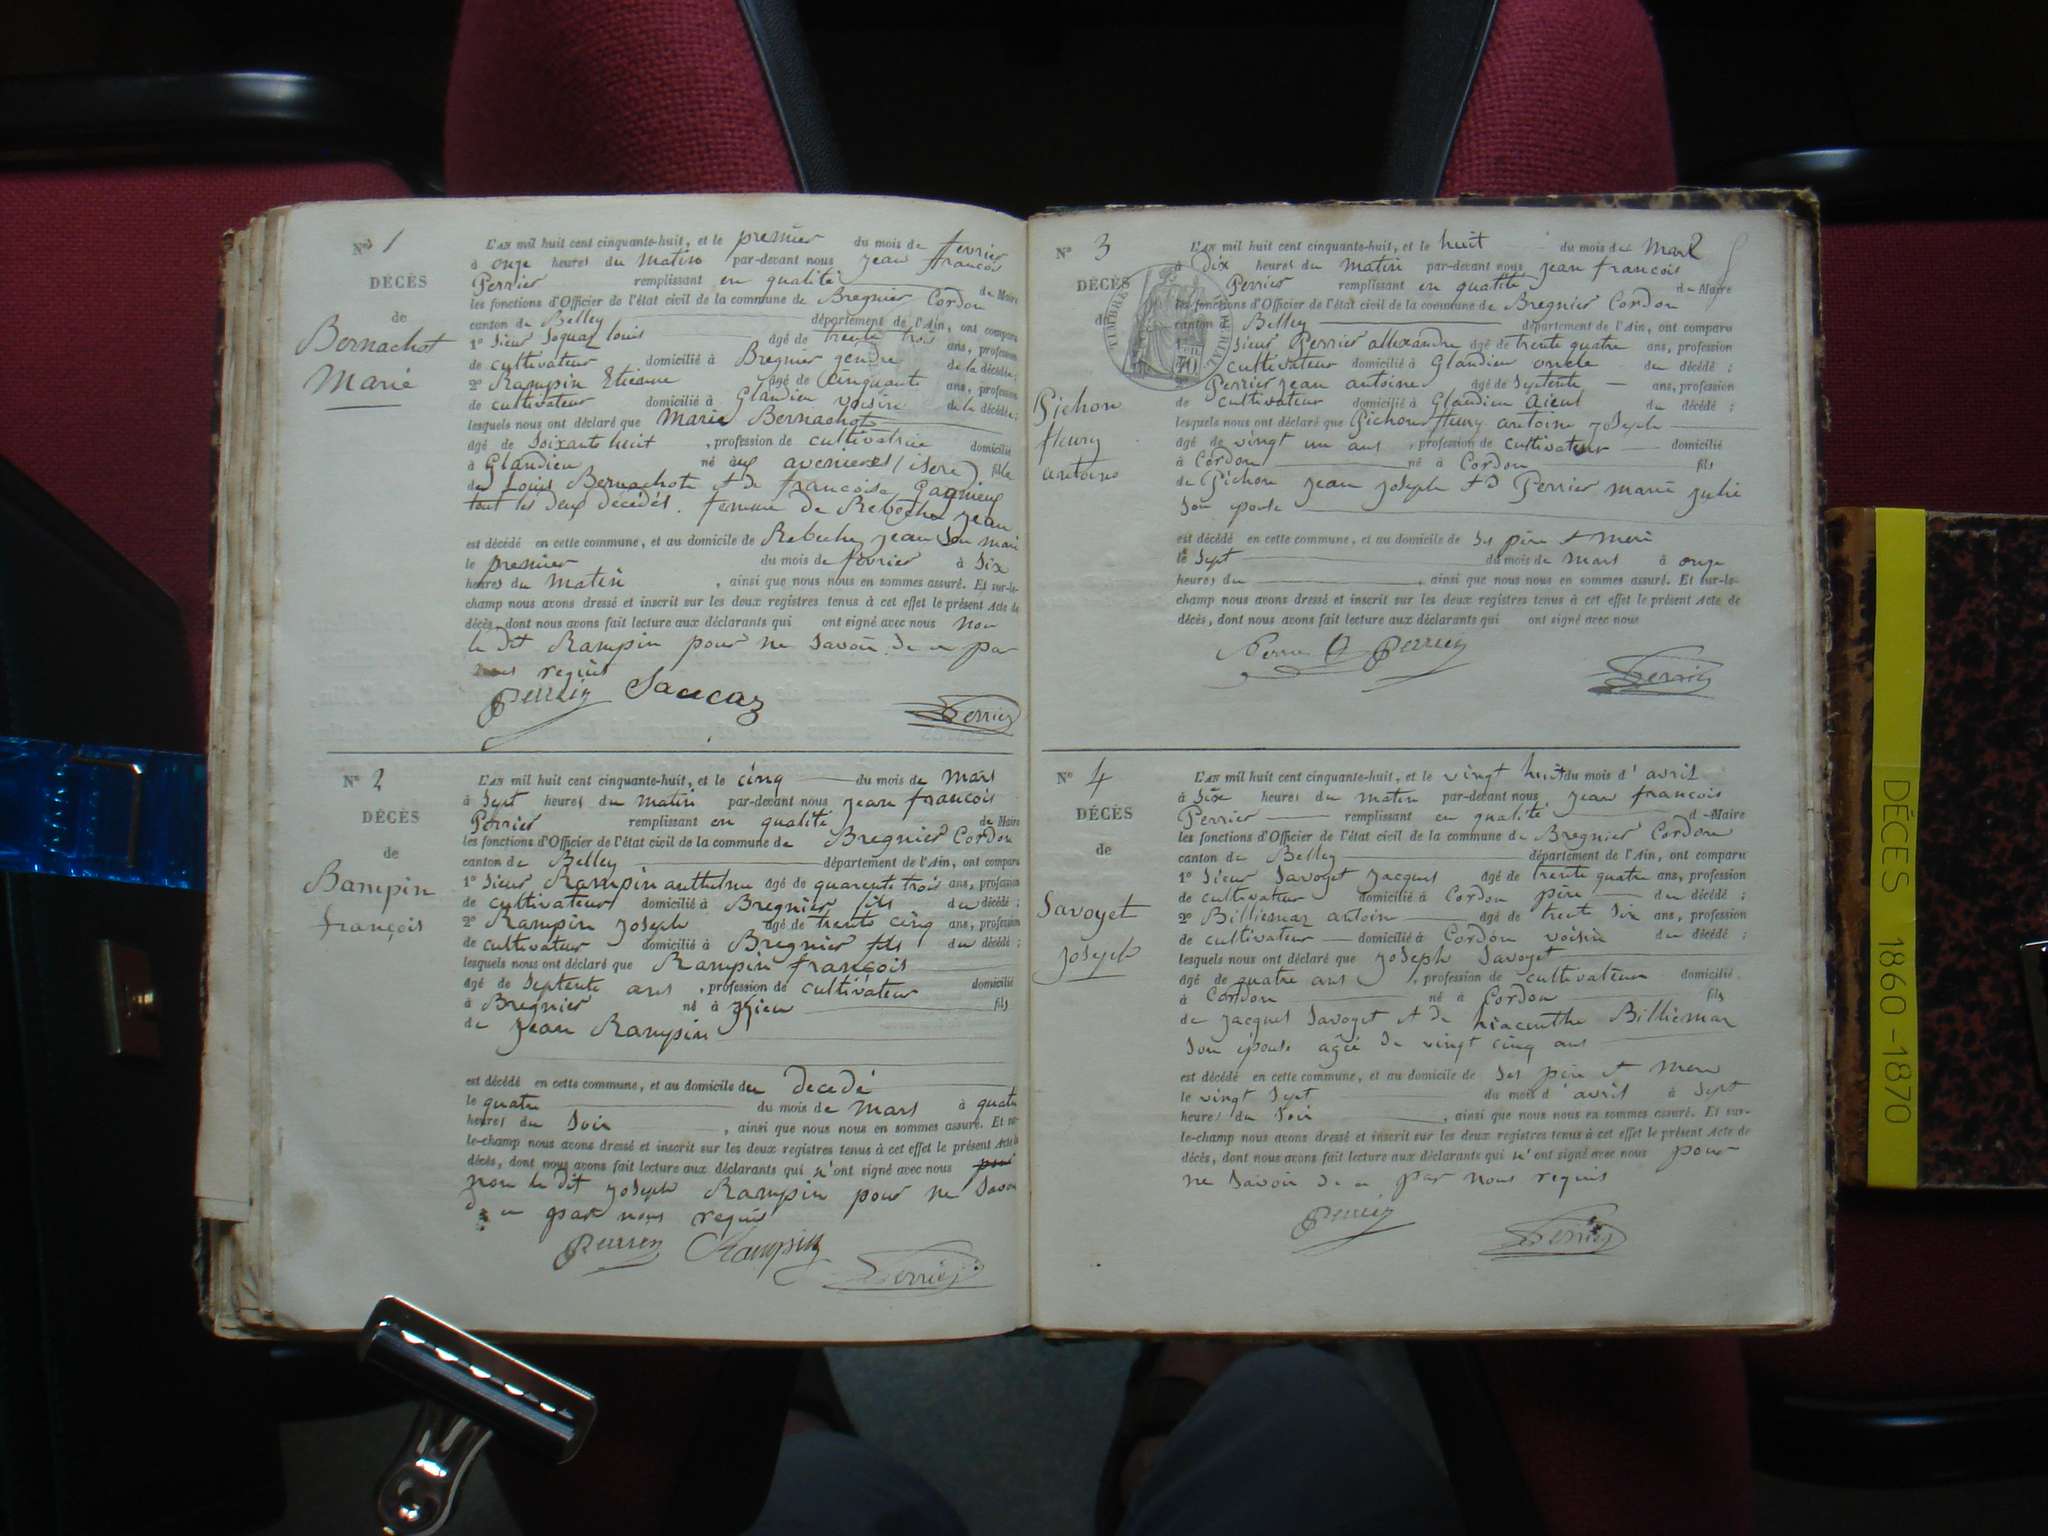 N° 1
DÉCÈS
de
Bernachot
Marie
L'AN mil huit cent cinquante-huit, et le premier du mois de fevrier
à onze heures du matin par-devant nous jean françois
Perrier remplissant en qualité de Maire
les fonctions d'Officier de l'état civil de la commune de Bregnier Cordon
canton de Belley département de l'Ain, ont comparu
1° Sieur louis âgé de trente trois ans, profession
de cultivateur domicilié à Bregnier gendre de la décédée;
2° Rampin Etienne âgé de cinquante ans, profession
de cultivateur domicilié à Glandieu voisin de la décédée;
lesquels nous ont déclaré que Marie Bernachot
âgé de Soixante huit , profession de cultivatrice domicilié
à Glandieu né à avenieres (isere) fille
de Louis Bernachot et de francoise
tout les deux décédés. femme de jean
est décédé en cette commune, et au domicile de jean Son mari
le premier du mois de fevrier à Six
heures du matin , ainsi que nous nous en sommes assuré. Et sur-le-
champ nous avons dressé et inscrit sur les deux registres tenus à cet effet le présent Acte de
décès, dont nous avons fait lecture aux déclarants qui ont signé avec nous non
le dit Rampin pour ne Savoir de ce par
nous requis
Perrier Saucaz Perrier
N° 2
DÉCÈS
de
Rampin
françois
L'AN mil huit cent cinquante-huit, et le cinq du mois de mars
à Sept heures du matin par-devant nous jean françois
Perrier remplissant en qualité de Maire
les fonctions d'Officier de l'état civil de la commune de Bregnier Cordon
canton de Belley département de l'Ain, ont comparu
1° Sieur Rampin anthelme âgé de quarente trois ans, profession
de cultivateur domicilié à Bregnier fils du décédé;
2° Rampin joseph âgé de trente cinq ans, profession
de cultivateur domicilié à Bregnier fils du décédé;
lesquels nous ont déclaré que Rampin françois
âgé de Septente ans , profession de cultivateur domicilié
à Bregnier né à izieu fils
de jean Rampin
est décédé en cette commune, et au domicile du decedé
le quatre du mois de mars à quatre
heures du Soir , ainsi que nous nous en sommes assuré. Et sur-
le-champ nous avons dressé et inscrit sur les deux registres tenus à cet effet le présent Acte de
décès, dont nous avons fait lecture aux déclarants qui n'ont signé avec nous
non le dit joseph Rampin pour ne Savoir
de ce par nous requis
Perrier Rampin Perrier
N° 3
DÉCÈS
de
Pichon
fleury
antoine
TIMBRE IMPÉRIAL
L'AN mil huit cent cinquante-huit, et le huit du mois de mars
à dix heures du matin par-devant nous jean françois
Perrier remplissant en qualité de Maire
les fonctions d'Officier de l'état civil de la commune de Bregnier Cordon
canton Belley département de l'Ain, ont comparu
Sieur Perrier allexandre âgé de trente quatre ans, profession
cultivateur domicilié à Glandieu oncle du décédé;
Perrier jean antoine âgé de Septente ans, profession
de cultivateur domicilié à Glandieu aieul du décédé;
lesquels nous ont déclaré que Pichon fleury antoine joseph
âgé de vingt un ans , profession de cultivateur domicilié
à Cordon né à Cordon fils
de Pichon jean joseph et de Perrier marie julie
Son epouse
est décédé en cette commune, et au domicile de Ses père et mere
le Sept du mois de mars à onze
heures du , ainsi que nous nous en sommes assuré. Et sur-le-
champ nous avons dressé et inscrit sur les deux registres tenus à cet effet le présent Acte de
décès, dont nous avons fait lecture aux déclarants qui ont signé avec nous
Perrier Perrier
N° 4
DÉCÈS
de
Savoyet
joseph
L'AN mil huit cent cinquante-huit, et le vingt huit du mois d'avril
à Six heures du matin par-devant nous jean françois
Perrier remplissant en qualité d Maire
les fonctions d'Officier de l'état civil de la commune de Bregnier Cordon
canton de Belley département de l'Ain, ont comparu
1° Sieur Savoyet jacques âgé de trente quatre ans, profession
de cultivateur domicilié à Cordon père du décédé;
2° Billiemaz antoine âgé de trente Six ans, profession
de cultivateur domicilié à Cordon voisin du décédé;
lesquels nous ont déclaré que joseph Savoyet
âgé de quatre ans , profession de cultivateur domicilié
à Cordon né à Cordon fils
de jacques Savoyet et de hiacinthe Billiemaz
Son epouse agée de vingt cinq ans
est décédé en cette commune, et au domicile de Ses père et mere
le vingt Sept du mois d'avril à Sept
heures du Soir , ainsi que nous nous en sommes assuré. Et sur-
le-champ nous avons dressé et inscrit sur les deux registres tenus à cet effet le présent Acte de
décès, dont nous avons fait lecture aux déclarants qui n'ont signé avec nous pour
ne Savoir de ce par nous requis
Perrier Perrier
DÉCES 1860-1870